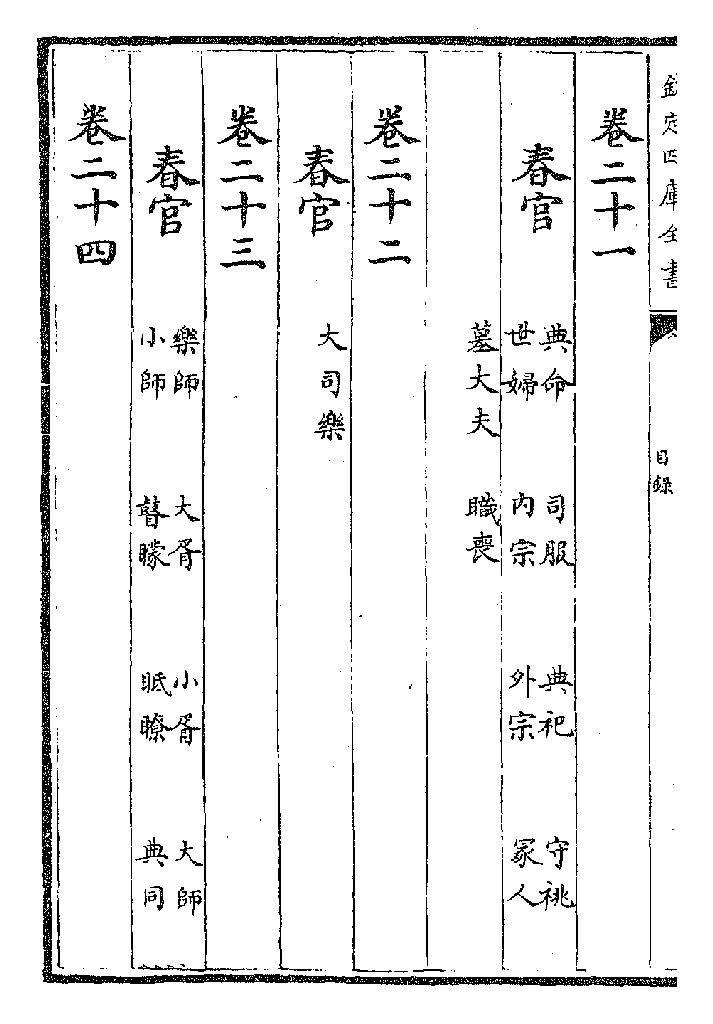 欽定四庫全書
目錄
卷二十一
春官
典命 司服 典祀 守祧
世婦 内宗 外宗 冢人
墓大夫 職喪
卷二十二
春官
大司樂
卷二十三
春官
樂師 大胥 小胥 大師
小師 瞽矇 眡瞭 典同
卷二十四